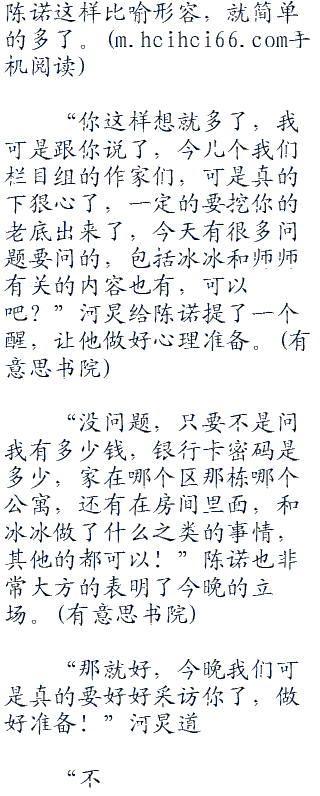 陈诺这样比喻形容，就简单
的多了。(m.hcihci66.com手
机阅读)
“你这样想就多了，我
可是跟你说了，今儿个我们
栏目组的作家们，可是真的
下狠心了，一定的要挖你的
老底出来了，今天有很多问
题要问的，包括冰冰和师师
有关的内容也有，可以
吧？”河炅给陈诺提了一个
醒，让他做好心理准备。(有
意思书院)
“没问题，只要不是问
我有多少钱，银行卡密码是
多少，家在哪个区那栋哪个
公寓，还有在房间里面，和
冰冰做了什么之类的事情，
其他的都可以！”陈诺也非
常大方的表明了今晚的立
场。(有意思书院)
“那就好，今晚我们可
是真的要好好采访你了，做
好准备！”河炅道
“不